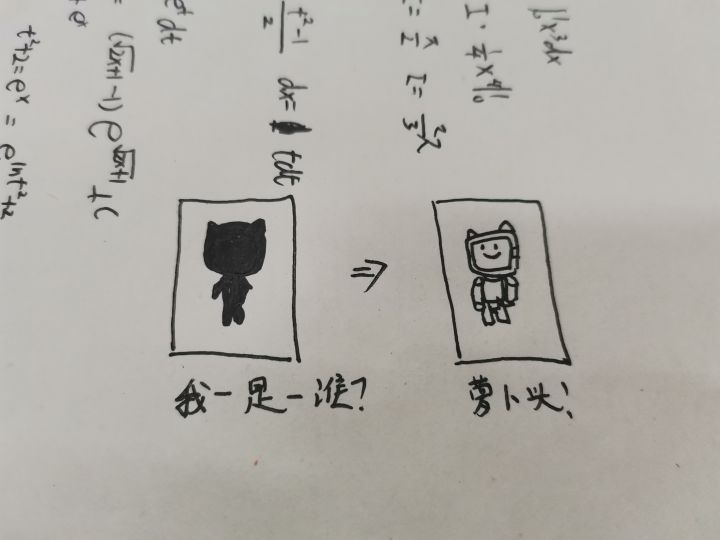 ∫₀¹x³dx
I · ¼x⁴|₀¹
= π/2 I = 2/3 π
t²-1/2 dx = tdt
eᵗdt
= (√2x+1 -1) e^√2x+1 + C
t²+2 = eˣ = e^ln t²+2
⇒
我一是一谁?
萝卜头!